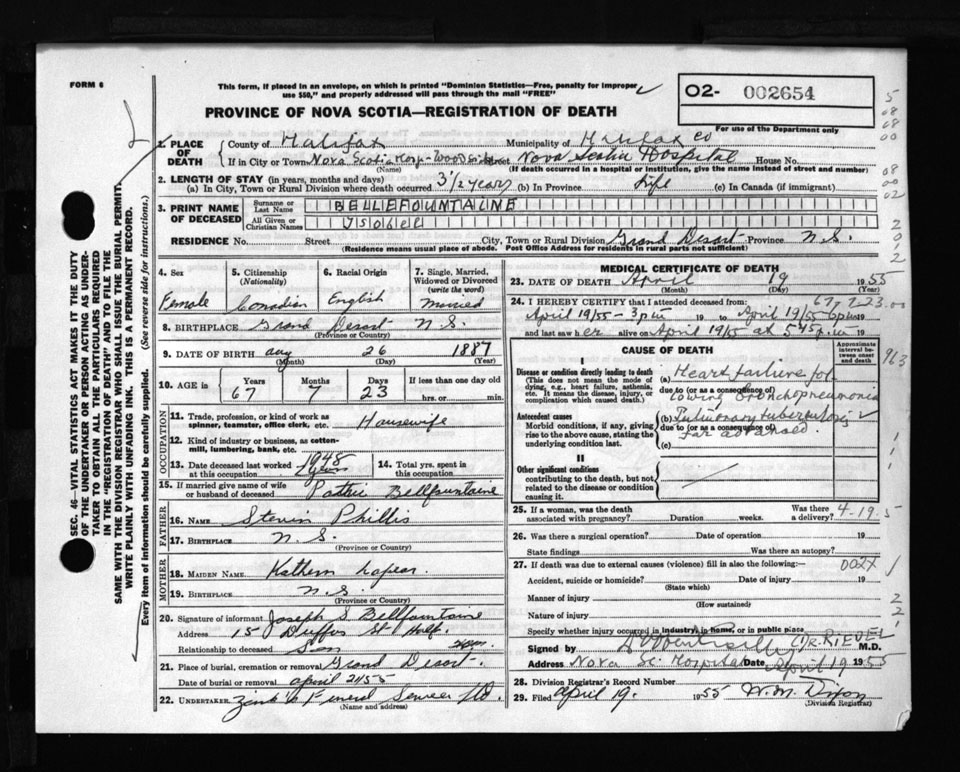 FORM 6
This form, if placed in an envelope, on which is printed "Dominion Statistics—Free, penalty for improper
use $50," and properly addressed will pass through the mail "FREE"
PROVINCE OF NOVA SCOTIA—REGISTRATION OF DEATH
O2- 002654
For use of the Department only
SEC. 46 VITAL STATISTICS ACT MAKES IT THE DUTY
OF THE UNDERTAKER OR PERSON ACTING AS UNDER-
TAKER TO OBTAIN ALL THE PARTICULARS REQUIRED
IN THE "REGISTRATION OF DEATH" AND TO FILE THE
SAME WITH THE DIVISION REGISTRAR WHO SHALL ISSUE THE BURIAL PERMIT.
WRITE PLAINLY WITH UNFADING INK. THIS IS A PERMANENT RECORD.
Every item of information should be carefully supplied. (See reverse side for instructions.)
1. PLACE OF DEATH
County of Halifax Municipality of Halifax Co
If in City or Town Nova Scotia Hosp- Street Nova Scotia Hospital House No.
(Name) (If death occurred in a hospital or institution, give the name instead of street and number)
2. LENGTH OF STAY (in years, months and days)
(a) In City, Town or Rural Division where death occurred 3 1/2 years (b) In Province Life (c) In Canada (if immigrant)
3. PRINT NAME OF DECEASED
Surname or Last Name BELLEFOUNTAINE
All Given or Christian Names
RESIDENCE No. Street City, Town or Rural Division Grand Desert Province N.S.
(Residence means usual place of abode. Post Office Address for residents in rural parts not sufficient)
4. Sex Female
5. Citizenship (Nationality) Canadian
6. Racial Origin English
7. Single, Married, Widowed or Divorced (write the word) Married
8. BIRTHPLACE Grand Desert N.S.
(Province or Country)
9. DATE OF BIRTH Aug 26 1887
(Month) (Day) (Year)
10. AGE in Years 67 Months 7 Days 23 If less than one day old hrs. or min.
OCCUPATION
11. Trade, profession, or kind of work as
spinner, teamster, office clerk, etc. Housewife
12. Kind of industry or business, as cotton-
mill, lumbering, bank, etc.
13. Date deceased last worked at this occupation 1948
14. Total yrs. spent in this occupation
15. If married give name of wife
or husband of deceased Bellfountaine
FATHER
16. NAME Phillis
17. BIRTHPLACE N.S.
(Province or Country)
MOTHER
18. MAIDEN NAME
19. BIRTHPLACE N.S.
(Province or Country)
20. Signature of informant Joseph S. Bellfountaine
Address 15 Duffus St Half.
Relationship to deceased Son
21. Place of burial, cremation or removal Grand Desert.
Date of burial or removal April 21 55
22. UNDERTAKER Funeral Service Ltd.
(Name and address)
MEDICAL CERTIFICATE OF DEATH
23. DATE OF DEATH April 19 1955
(Month) (Day) (Year)
24. I HEREBY CERTIFY that I attended deceased from: 67 7 23.00
April 19/55 - 3 pm 19 to April 19/55 6pm 19
and last saw her alive on April 19/55 at 545 p.m 19
CAUSE OF DEATH
Approximate interval between onset and death
I
Disease or condition directly leading to death
(This does not mean the mode of
dying, e.g., heart failure, asthenia,
etc. It means the disease, injury, or
complication which caused death.)
(a) Heart failure fol-
due to (or as a consequence of)
lowing bronchopneumonia
Antecedent causes
Morbid conditions, if any, giving
rise to the above cause, stating the
underlying condition last.
(b) Pulmonary tuberculosis
due to (or as a consequence of)
far advanced.
(c)
II
Other significant conditions
contributing to the death, but not
related to the disease or condition
causing it.
25. If a woman, was the death
associated with pregnancy? Duration weeks. Was there a delivery? 4-19.5
26. Was there a surgical operation? Date of operation 19
State findings Was there an autopsy?
27. If death was due to external causes (violence) fill in also the following:— 002X
Accident, suicide or homicide? Date of injury 19
(State which)
Manner of injury
(How sustained)
Nature of injury
Specify whether injury occurred in industry, in home, or in public place
Signed by DR. RIEVEL M.D.
Address Nova Sc. Hospital Date April 19 1955
28. Division Registrar's Record Number
29. Filed April 19. 1955 W.M. Dixon
(Division Registrar)